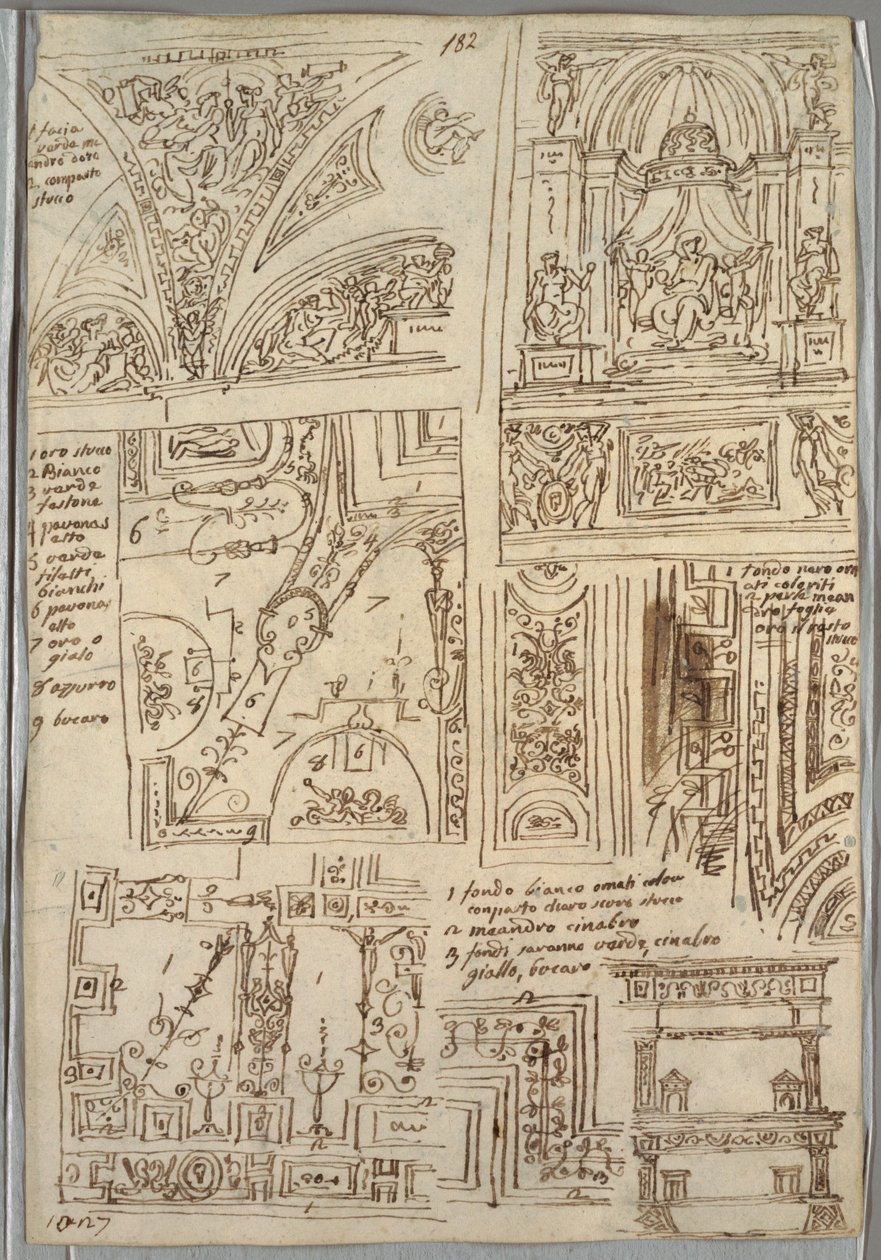 182
1 facia
varde me
andro dora
2 composto
stuco
1 oro stuco
2 Bianco
3 varde
fastone
4 pavonaz
etto
5 varde
filatti
bianchi
6 pavonaz
etto
7 oro o
gialo
8 azzurro
9 bucaro
1 fondo naro orn
ati coloriti
2 parla mean
dro foglia
oro il rasto
stuco
1 fondo bianco ornati colou
conpasto charo scuro stuco
2 meandro cinabro
3 fondi saranno varde, cinabro
giallo, bucaro